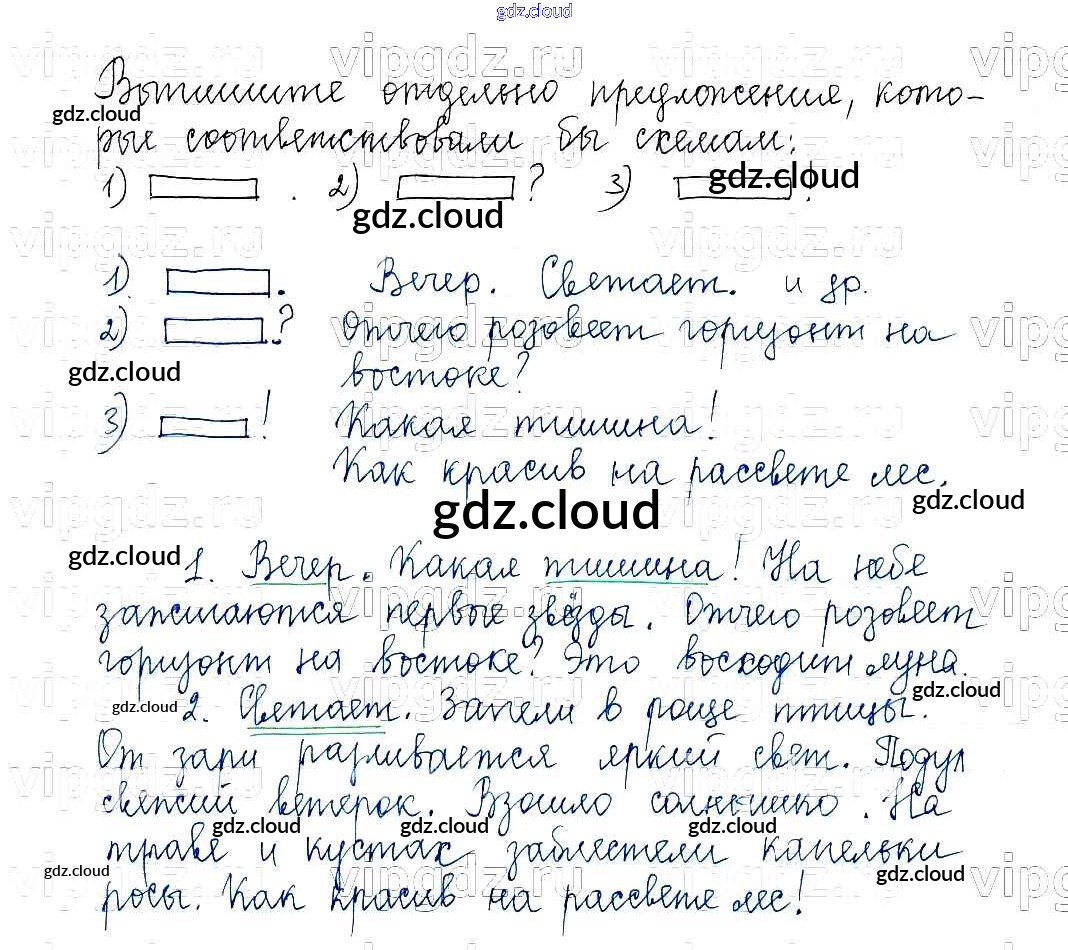 gdz.cloud
Выпишите отдельно предложения, кото-
рые соответствовали бы схемам:
1) . 2) ? 3) !
1) . Вечер. Светает. и др.
2) . ? Отчего розовеет горизонт на
востоке?
3) ! Какая тишина!
Как красив на рассвете лес.
gdz.cloud
1. Вечер. Какая тишина! На небе
зажигаются первые звёзды. Отчего розовеет
горизонт на востоке? Это восходит луна.
2. Светает. Запели в роще птицы.
От зари разливается яркий свет. Подул
свежий ветерок. Взошло солнышко. На
траве и кустах заблестели капельки
росы. Как красив на рассвете лес!